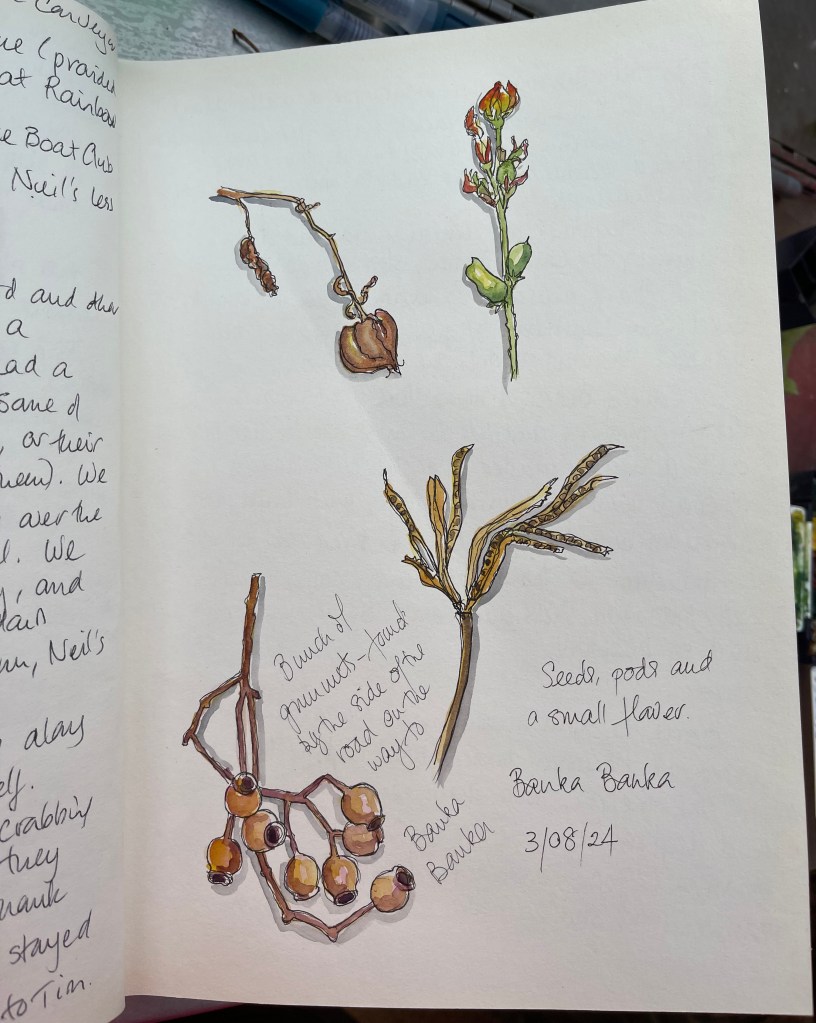 Conveyor
ue (praided
at Rainbow
e Boat Club
Neil's less
d and then
a
ad a
same d
, or their
heen). We
over the
l. We
y, and
dain
um, Neil's
, along
elf.
crabbix
they
hank
stayed
to Tim.
Bunch of
gumnuts - found
by the side of the
road on the
way to
Banka
Banka
Seeds, pods and
a small flower.
Banka Banka
3/08/24